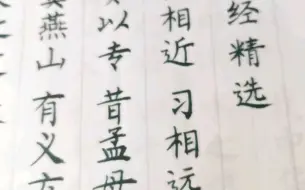 经精选
相近 习相远
以专 昔孟母
燕山 有义方